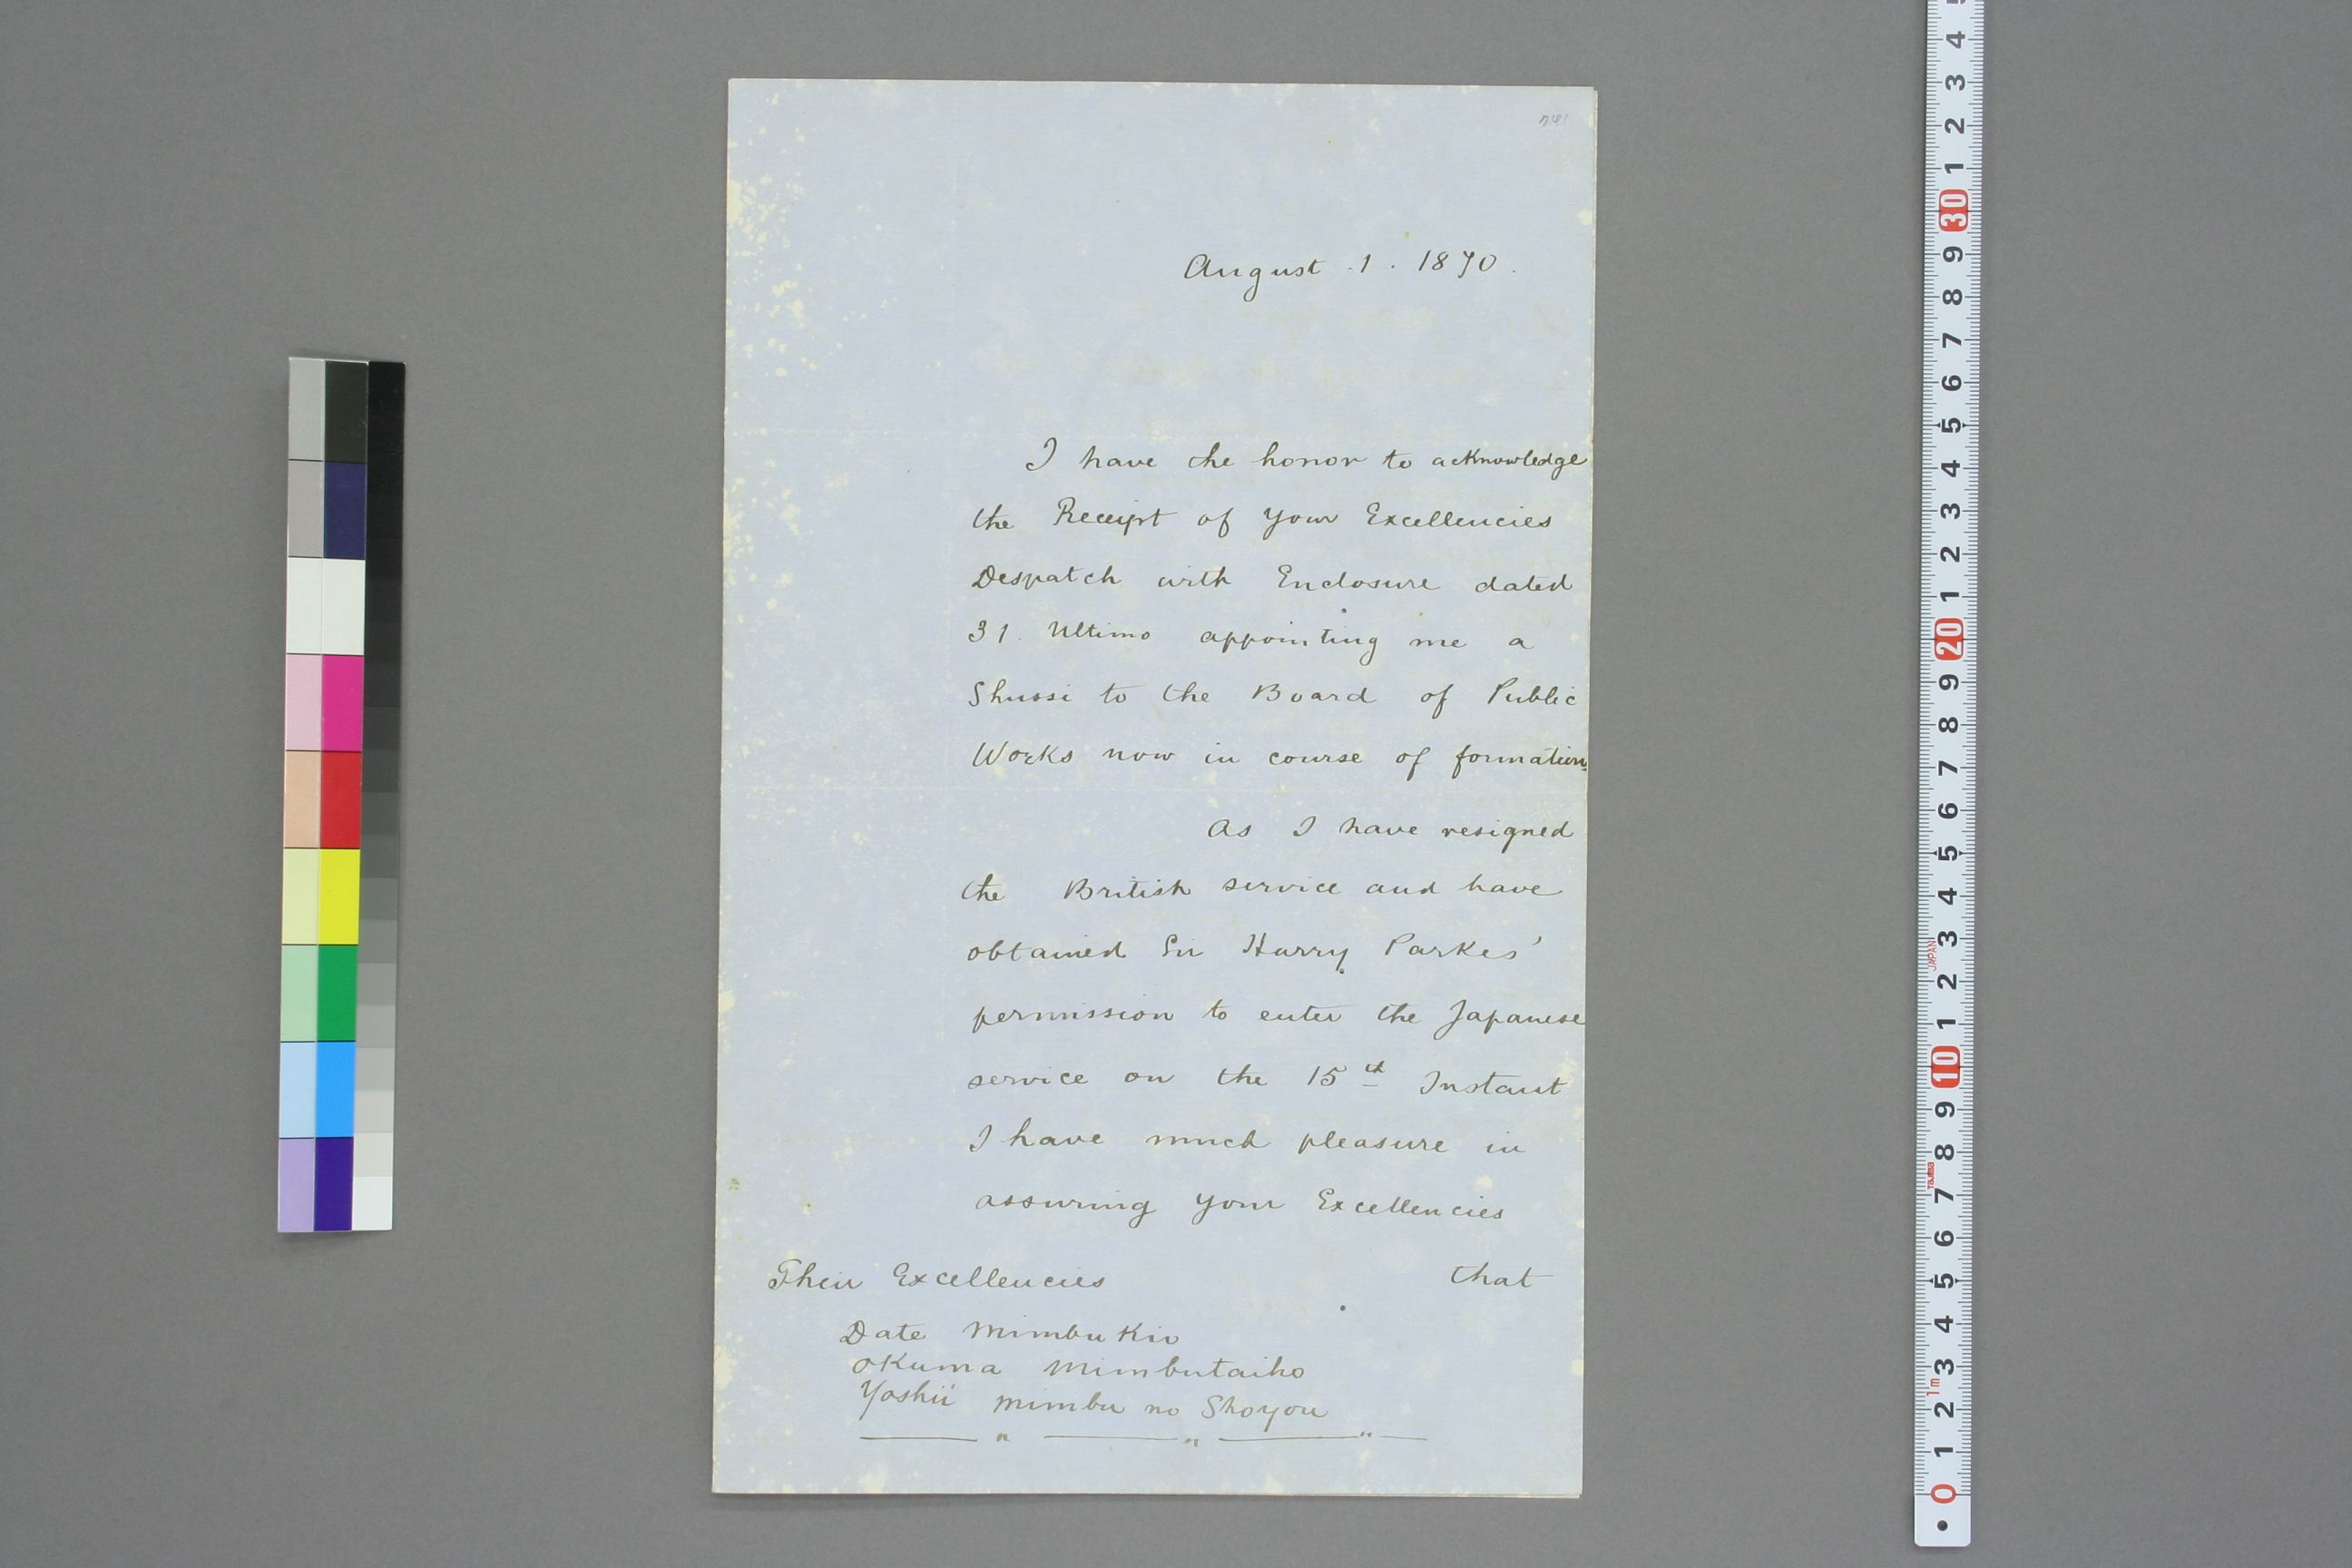 August .1. 1870.
I have the honor to acknowledge
the Receipt of Your Excellencies
Despatch with Enclosure dated
31. Ultimo appointing me a
Shussi to the Board of Public
Works now in course of formation.
As I have resigned
the British service and have
obtained Sir Harry Parkes'
permission to enter the Japanese
service on the 15th Instant
I have much pleasure in
assuring Your Excellencies
that
Their Excellencies
Date Mimbu Kio
Okuma Mimbutaiho
Yoshii Mimbu no Shoyou
〃 〃 〃
4 3 2 1 30 9 8 7 6 5 4 3 2 1 20 9 8 7 6 5 4 3 2 1 10 9 8 7 6 5 4 3 2 1 0
JAPAN
Tajima
1m